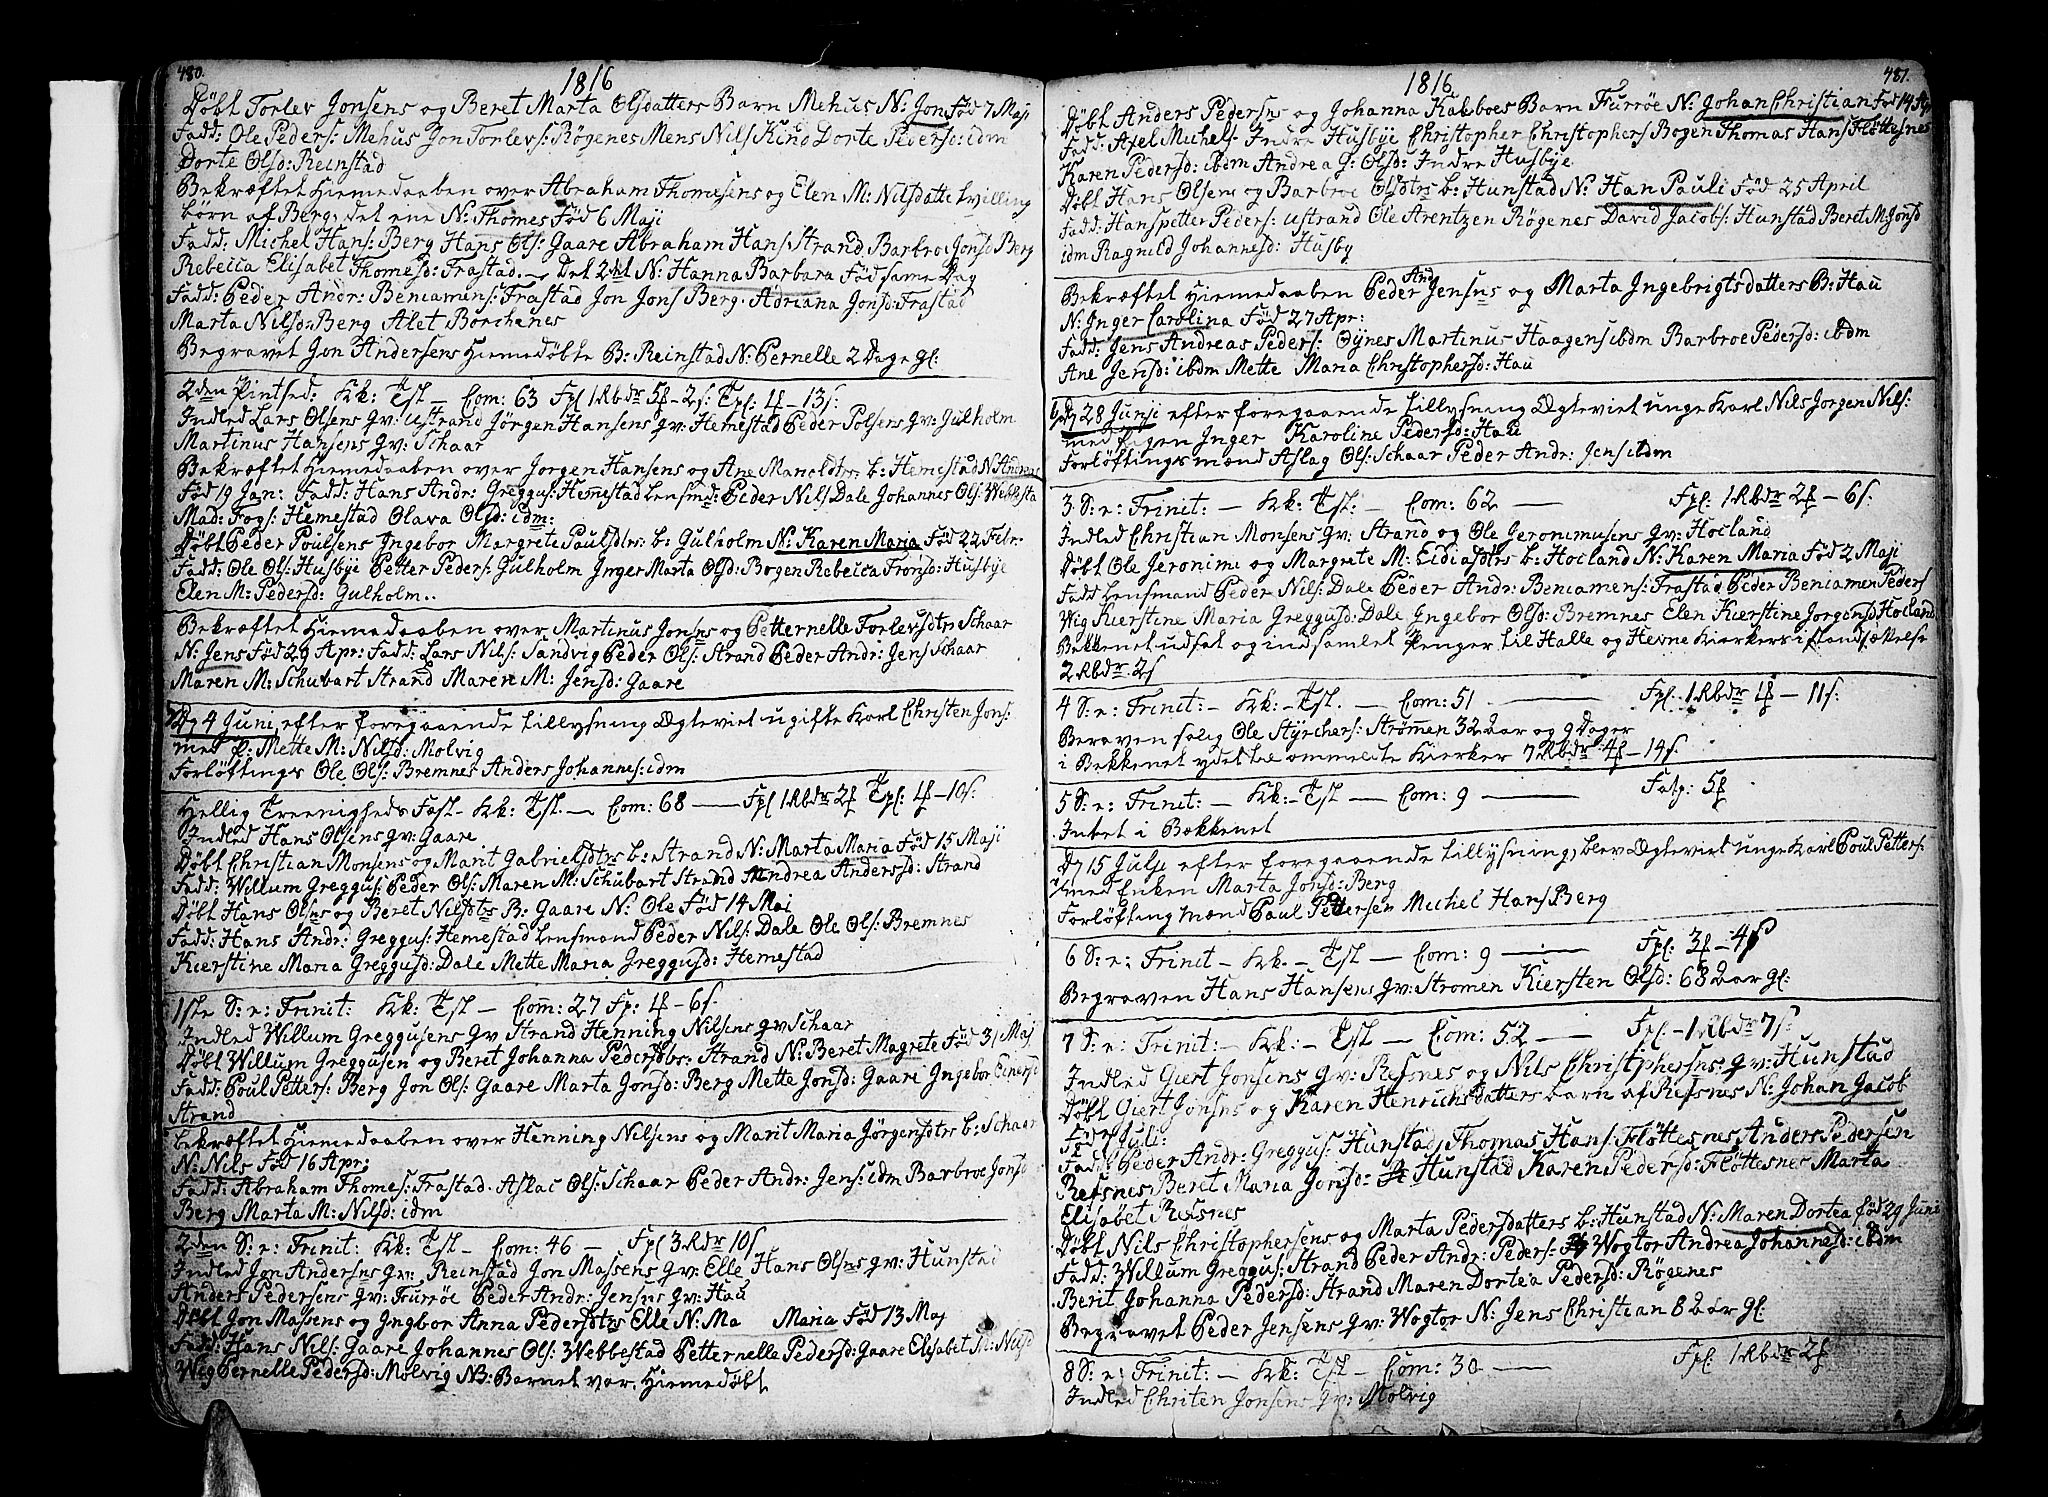 480.
1816
Döbt Torlev Jonsens og Beret Marta Olsdatters Barn Mehus N: Jon Föd 7 Maji
Fadd: Ole Peders: Mehus Jon Torlevs: Rögenes Mens Nils Kund Dorte Pedersd: idm
Dorte Olsd: Reinstad
Bekræftet Hiemedaaben over Abraham Thomesens og Elen M: Nilsdatte tvilling
börn af Berg, det ene N: Thomes Föd 6 Maji
Fadd: Michel Hans: Berg Hans Ols: Gaare Abraham Hans: Strand Barbroe Jonsd Berg
Rebecca Elisabet Thomesd: Frastad. Det 2det N: Hanna Barbara Föd same Dag
Fadd: Peder Andr: Beniamins: Frastad Jon Jons Berg. Adriana Jonsd: Frastad
Marta Nilsd: Berg Alet Borchenes
Begravet Jon Andersens Hiemedöbte B: Reinstad N: Pernelle 2 Dage gl:
2den Pintsed: Kk: Tst — Com: 63 Fpl 1 Rbdr 5f - 2s: Tpl: 1f - 13s:
Indled Lars Olsens gv: Ustrand Jörgen Hansens gv: Hemestad Peder Polsens gv: Gulholm
Martinus Hansens gv: Schaar
Bekræftet Hiemedaaben over Jorgen Hansens og Ane Manoldtr: b: Hemestad N: Andreas
Föd 19 Jan: Fadd: Hans Andr: Greggus: Hemestad Lensmd: Peder Nils Dale Johannes Ols: Webbesta
Mad: Fogs: Hemestad Olava Olsd: idm:
Döbt Peder Poulsens Ingebor Margrete Paulsdtrs: b: Gulholm N: Karen Maria Föd 22 Febr:
Fadd: Ole Ols: Husbye Petter Peders: Gulholm Inger Marta Olsd: Bogen Rebecca Fronsd: Husbye
Elen M: Pedersd: Gulholm..
Bekræftet Hiemedaaben over Martinus Jonsns og Petternelle Torlevsdtrs Schaar
N: Jens Föd 29 Apr: Fadd: Lars Nils: Sandvig Peder Ols: Strand Peder Andr: Jens Schaar
Maren M: Schubart Strand Maren M: Jensd: Gaare
Dg 4 Juni, efter foregaaende tillysning Ægteviet ugifte Karl Christen Jons:
med p: Mette M: Nilsd: Molvig
Forlöftings Ole Ols: Bremnes Anders Johannes: idm
Hellig Treenigheds Fest- Kk: Tst. — Com: 68 — Fpl 1 Rbdr 2f Tpl: 1f - 10s:
Indled Hans Olsens gv: Gaare
Döbt Christian Monsens og Marit Gabrielsdtrs b: Strand N: Marta Maria Föd 15 Maji
Fadd: Willum Greggus: Peder Ols: Maren M: Schubart Strand Andrea Andersd: Strand
Döbt Hans Olsns og Beret Nilsdtrs B: Gaare N: Ole Föd 14 Maj
Fadd: Hans Andr: Greggus: Hemestad Lensmand Peder Nils: Dale Ole Ols: Bremnes
Kierstine Maria Greggusd: Dale Mette Maria Greggusd: Hemestad
1ste S: e: Trinit: Kk: Tst — Com: 27 Fp: 1f - 6s.
Indled Willum Greggusens gv Strand Henning Nilsens gv Schaar
Döbt Willum Greggusen og Beret Johanna Pedersdtrs: Strand N: Beret Magrete Föd 31 Maj
Fadd: Poul Petters: Berg Jon Ols: Gaare Marta Jonsd: Berg Mette Jonsd: Gaare Ingebor Einersd
Strand
bekræftet Hiemedaaben over Henning Nilsens og Marit Maria Jörgensdtrs b: Schaar
N: Nils Föd 16 Apr:
Fadd: Abraham Thomes: Frastad. Aslac Ols: Schaar Peder Andr: Jens: idm Barbroe Jonsd
Berg Marta M: Nilsd: idm
2den S: e: Trinit: Kk: Tst - Com: 46 — Fpl 3 Rdr 10s
Indled Jon Andersns gv: Reinstad Jon Massens gv: Elle Hans Olsns gv: Hunstad
Anders Pedersens gv: Furröe Peder Andr: Jensns gv: Hau
Döbt Jon Massens og Ingbor Anna Pedersdtrs Elle N: Ma Maria Föd 13 Maj
Fadd: Hans Nils: Gaare Johannes Ols: Webbestad Petternelle Pedersd: Gaare Elisabet Nilsd
Wig Pernelle Pedersd: Molvig NB: Barnet var Hiemedöbt
481.
1816
Döbt Anders Pedersns og Johanna Kalsboes Barn Furröe N: Johan Christian Föd 14 Ap
Fadd: Axel Michels: Indre Husbye Christopher Christophers Bogen Thomas Hans Flöttesnes
Karen Pedersd: ibdm Andrea G: Olsd: Indre Husbye
Döbt Hans Olsens og Barbroe Olsdtrs b: Hunstad N: Han Pauli Föd 25 April
Fadd: Hanspetter Peders: Ustrand Ole Arentzen Rögenes David Jacobs: Hunstad Beret M: Jonsd
idm Ragnild Johannesd: Husby
Bekræftet Hiemedaaben Peder And Jensns og Marta Ingebrigtsdatters B: Hau
N: Inger Carolina Föd 27 Apr:
Fadd: Jens Andreas Peders: Öynes Martinus Haagens ibdm Barbroe Pedersd: ibdm
Ane Jensd: ibdm Mette Maria Christophersd: Hau
Dg 28 Junji efter foregaaende tillysning Ægteviet unge Karl Nils Jorgen Nils:
med pigen Inger Karoline Pedersd: Hau
Forlöftings mænd Aslag Ols: Schaar Peder Andr: Jens ibdm
3 S: e: Trinit: — Kk: Tst: — Com: 62 — Fpl: 1 Rbdr 2f - 6s.
Indled Christian Monsens gv: Strand og Ole Jeronimusens gv: Hocland
Döbt Ole Jeronimi og Margrete M: Eidiasdtrs b: Hocland N: Karen Maria Föd 2 Maji
Fadd Lensmand Peder Nils: Dale Peder Andr: Beniamens: Frastad Peder Beniamen Peders
Wig Kierstine Maria Greggusd: Dale Ingebor Olsd: Bremnes Elen Kierstine Jorgensd Hocland
Bekkenet udsat og indsamlet Penger til Halle og Hevne Kierkers istandsættelse
2 Rbdr 2s
4 S: e: Trinit: — Kk: - Tst. — Com: 51 — Fpl: 1 Rbdr 1f — 11s:
Beraven salig Ole Styrchers: Strömen 32 Aar og 9 Dager
i Bekkenet ydet til ommeldte Kierker 7 Rbdr 4f - 14s.
5 S: e: Trinit: — Kk: - Tst — Com: 9 — Fatp: 5f
Intet i Bækkenet
Dg 15 July efter foregaaende tillysning, blev Ægteviet unge Karl Poul Petters:
med Enken Marta Jonsd: Berg
Forlöfting mænd Paul Pettersen Michel Hans Berg
6 S: e: Trinit - Kk. - Tst — Com: 9 — Fpl: 3f - 4s
Begraven Hans Hansens gv: Stromen Kiersten Olsd: 68 Aar gl:
7 S: e: Trinit: — Kk: - Tst — Com: 52 — Fpl: - 1 Rbdr 7s:
Indled Giert Jonsens gv: Refsnes og Nils Christphersns: gv: Hunstad
Döbt Giert Jonsns og Karen Henrichsdatters barn af Refsnes N: Johan Jacob
Föd 7 Juli:
Fadd: Peder Andr: Greggus: Hunstad, Thomas Hans: Flöttesnes, Anders Pedersen
Refsnes, Beret Maria Jonsd: Hunstad Karen Pedersd: Flöttesnes Marta
Elisabet Refsnes
Döbt Nils Christophersens og Marta Pedersdatters b: Hunstad N: Maren Dortea föd 29 Juni
Fadd: Willum Greggus: Strand Peder Andr: Peders: Wogtor Andrea Johannesd: ibdm
Berit Johanna Pedersd: Strand Maren Dortea Pedersd: Rögenes
Begravet Peder Jensens gv: Wogtor N: Jens Christian 8 Aar gl
8 S: e: Trinit: — Kk: Tst — Com: 30 — Fpl: 1 Rbdr 2f
Indled Chriten Jonsens gv: Molvig